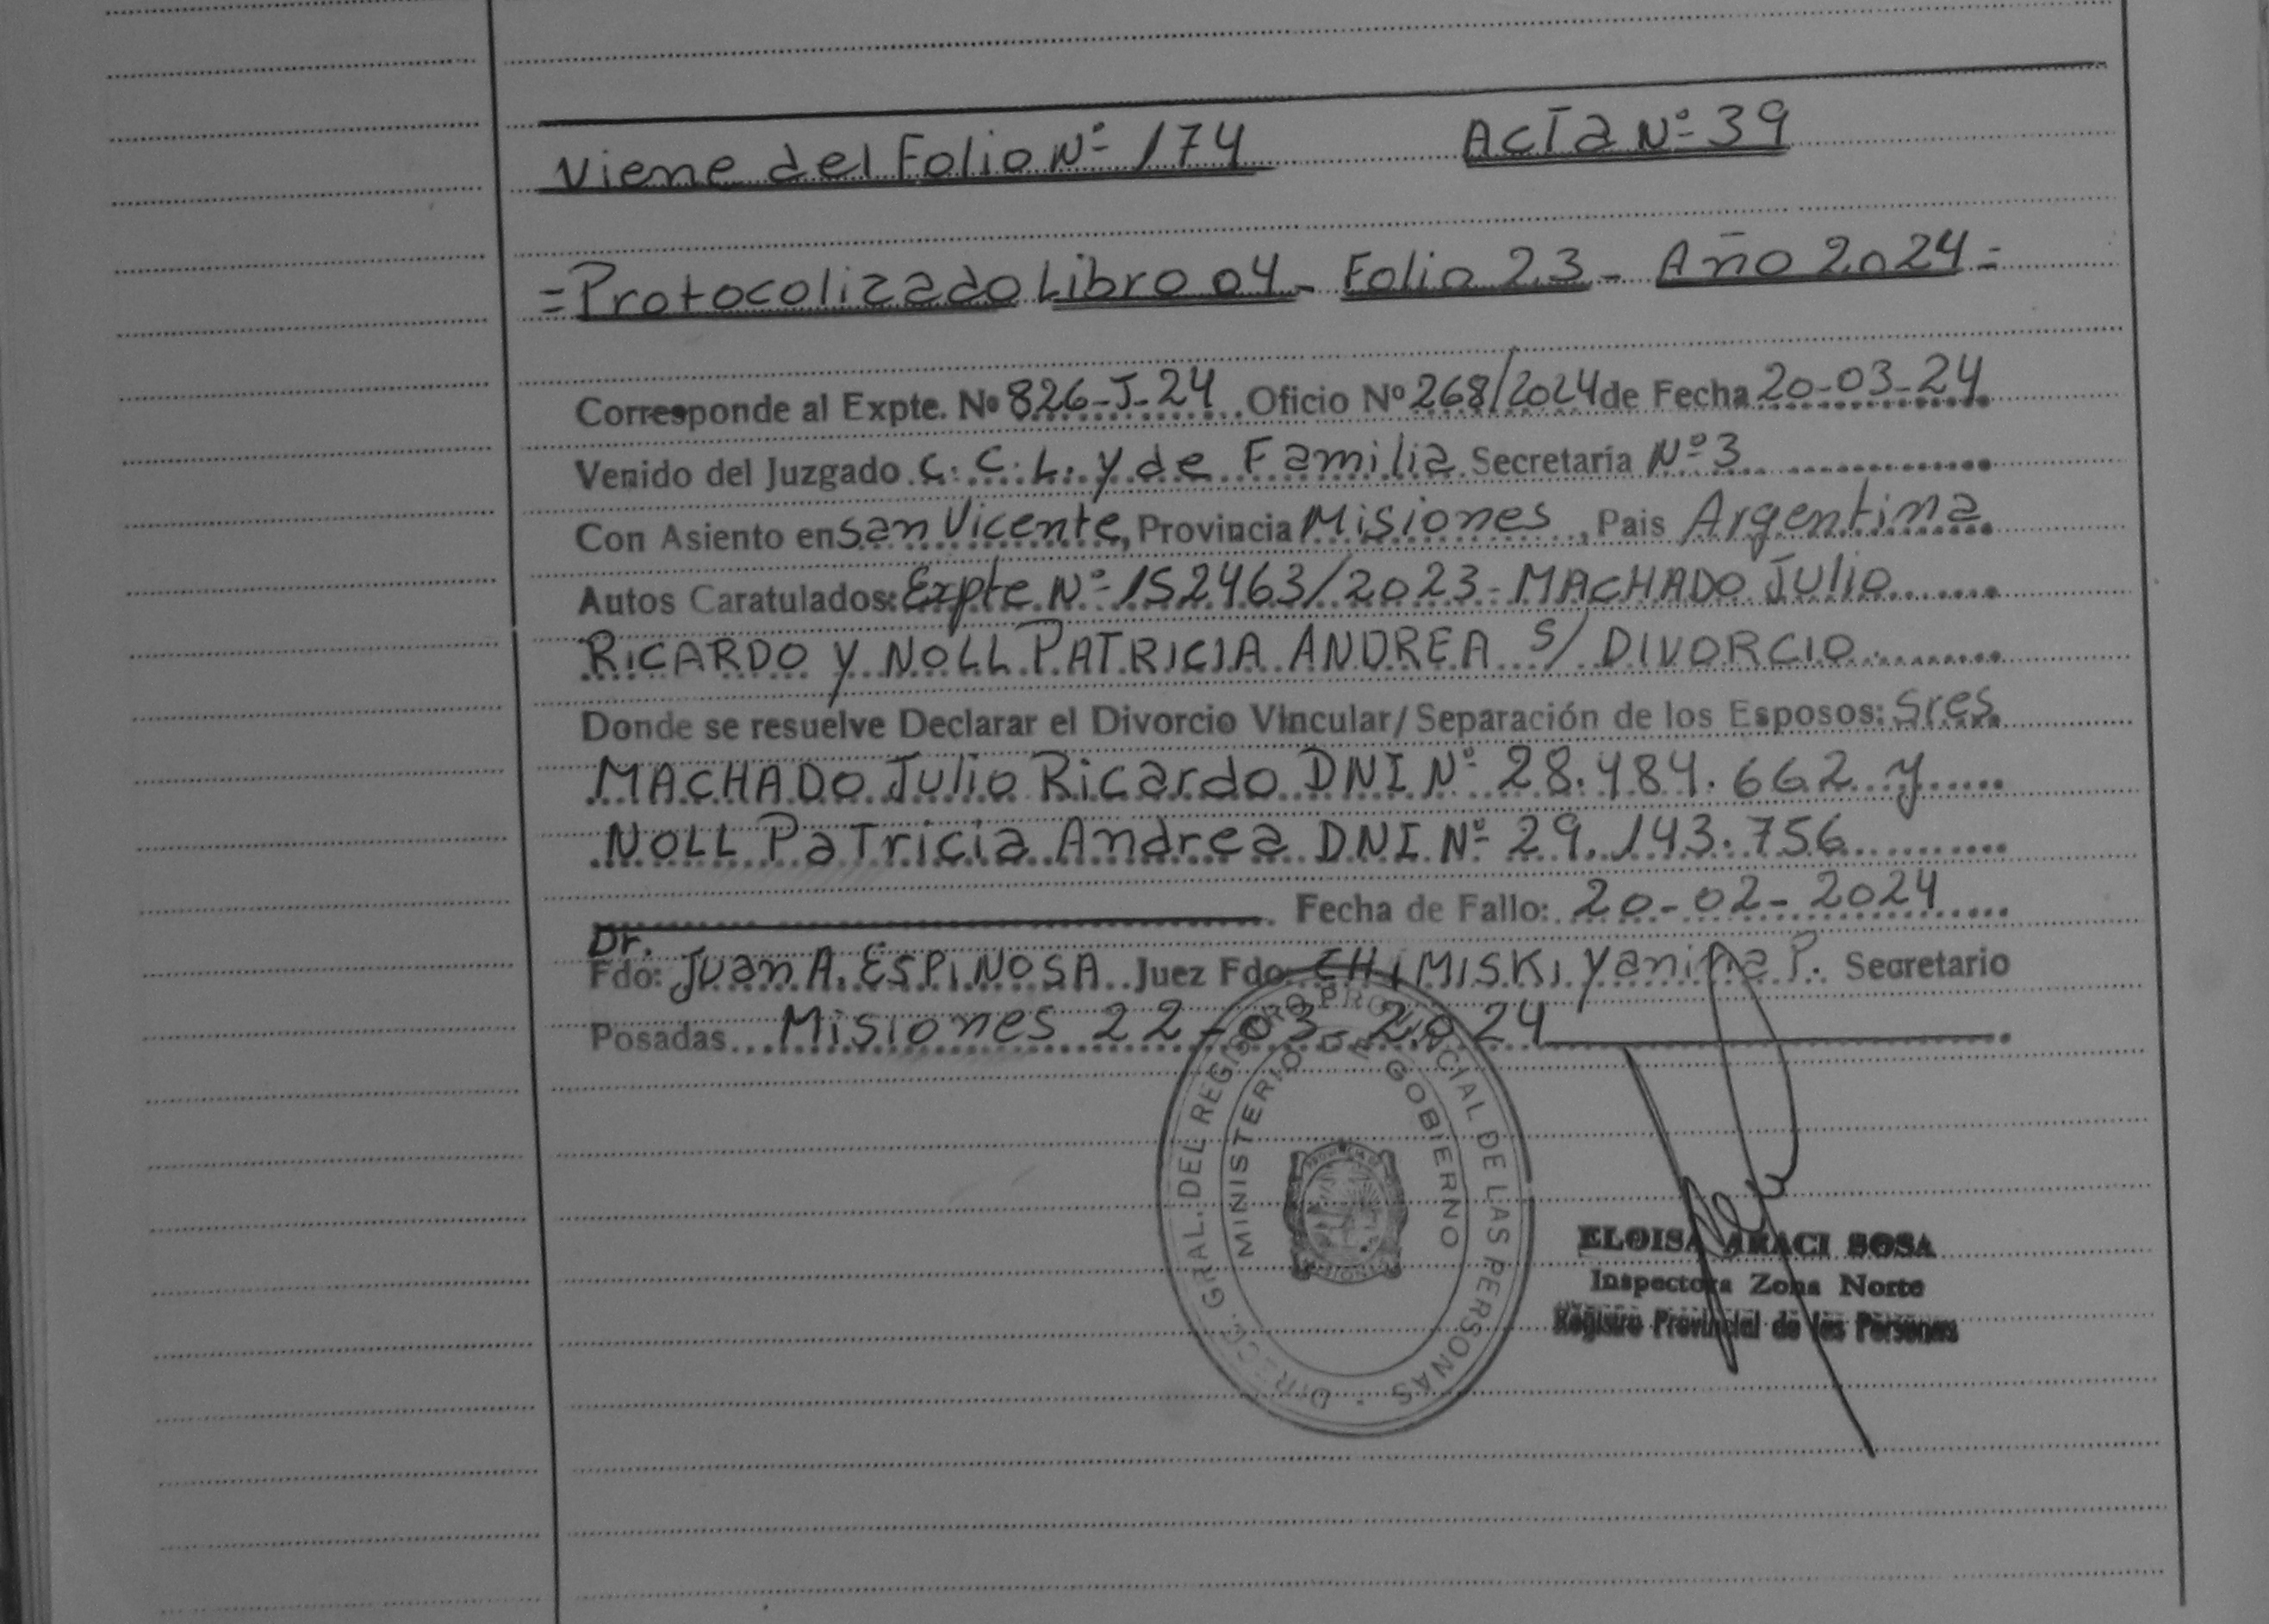 Viene del Folio Nº 174 Acta Nº 39
=Protocolizado Libro 04- Folio 23- Año 2024=
Corresponde al Expte. Nº 826-J-24 Oficio Nº 268/2024 de Fecha 20-03-24
Venido del Juzgado C. C. L. y de Familia Secretaría Nº 3
Con Asiento en San Vicente, Provincia Misiones, Pais Argentina
Autos Caratulados: Expte Nº 152463/2023- MACHADO JULIO
RICARDO Y NOLL PATRICIA ANDREA S/ DIVORCIO
Donde se resuelve Declarar el Divorcio Vincular/Separación de los Esposos: Sres
MACHADO Julio Ricardo DNI Nº 28.484.662 y
NOLL Patricia Andrea DNI Nº 29.143.756
Fecha de Fallo: 20-02-2024
Dr.
Fdo: Juan A. ESPINOSA Juez Fdo: CHIMISKI Yanina P. Secretario
Posadas Misiones 22-03-2024
DIRECC. GRAL. DEL REGISTRO PROVINCIAL DE LAS PERSONAS
MINISTERIO DE GOBIERNO
ELOISA ARACI SOSA
Inspectora Zona Norte
Registro Provincial de las Personas